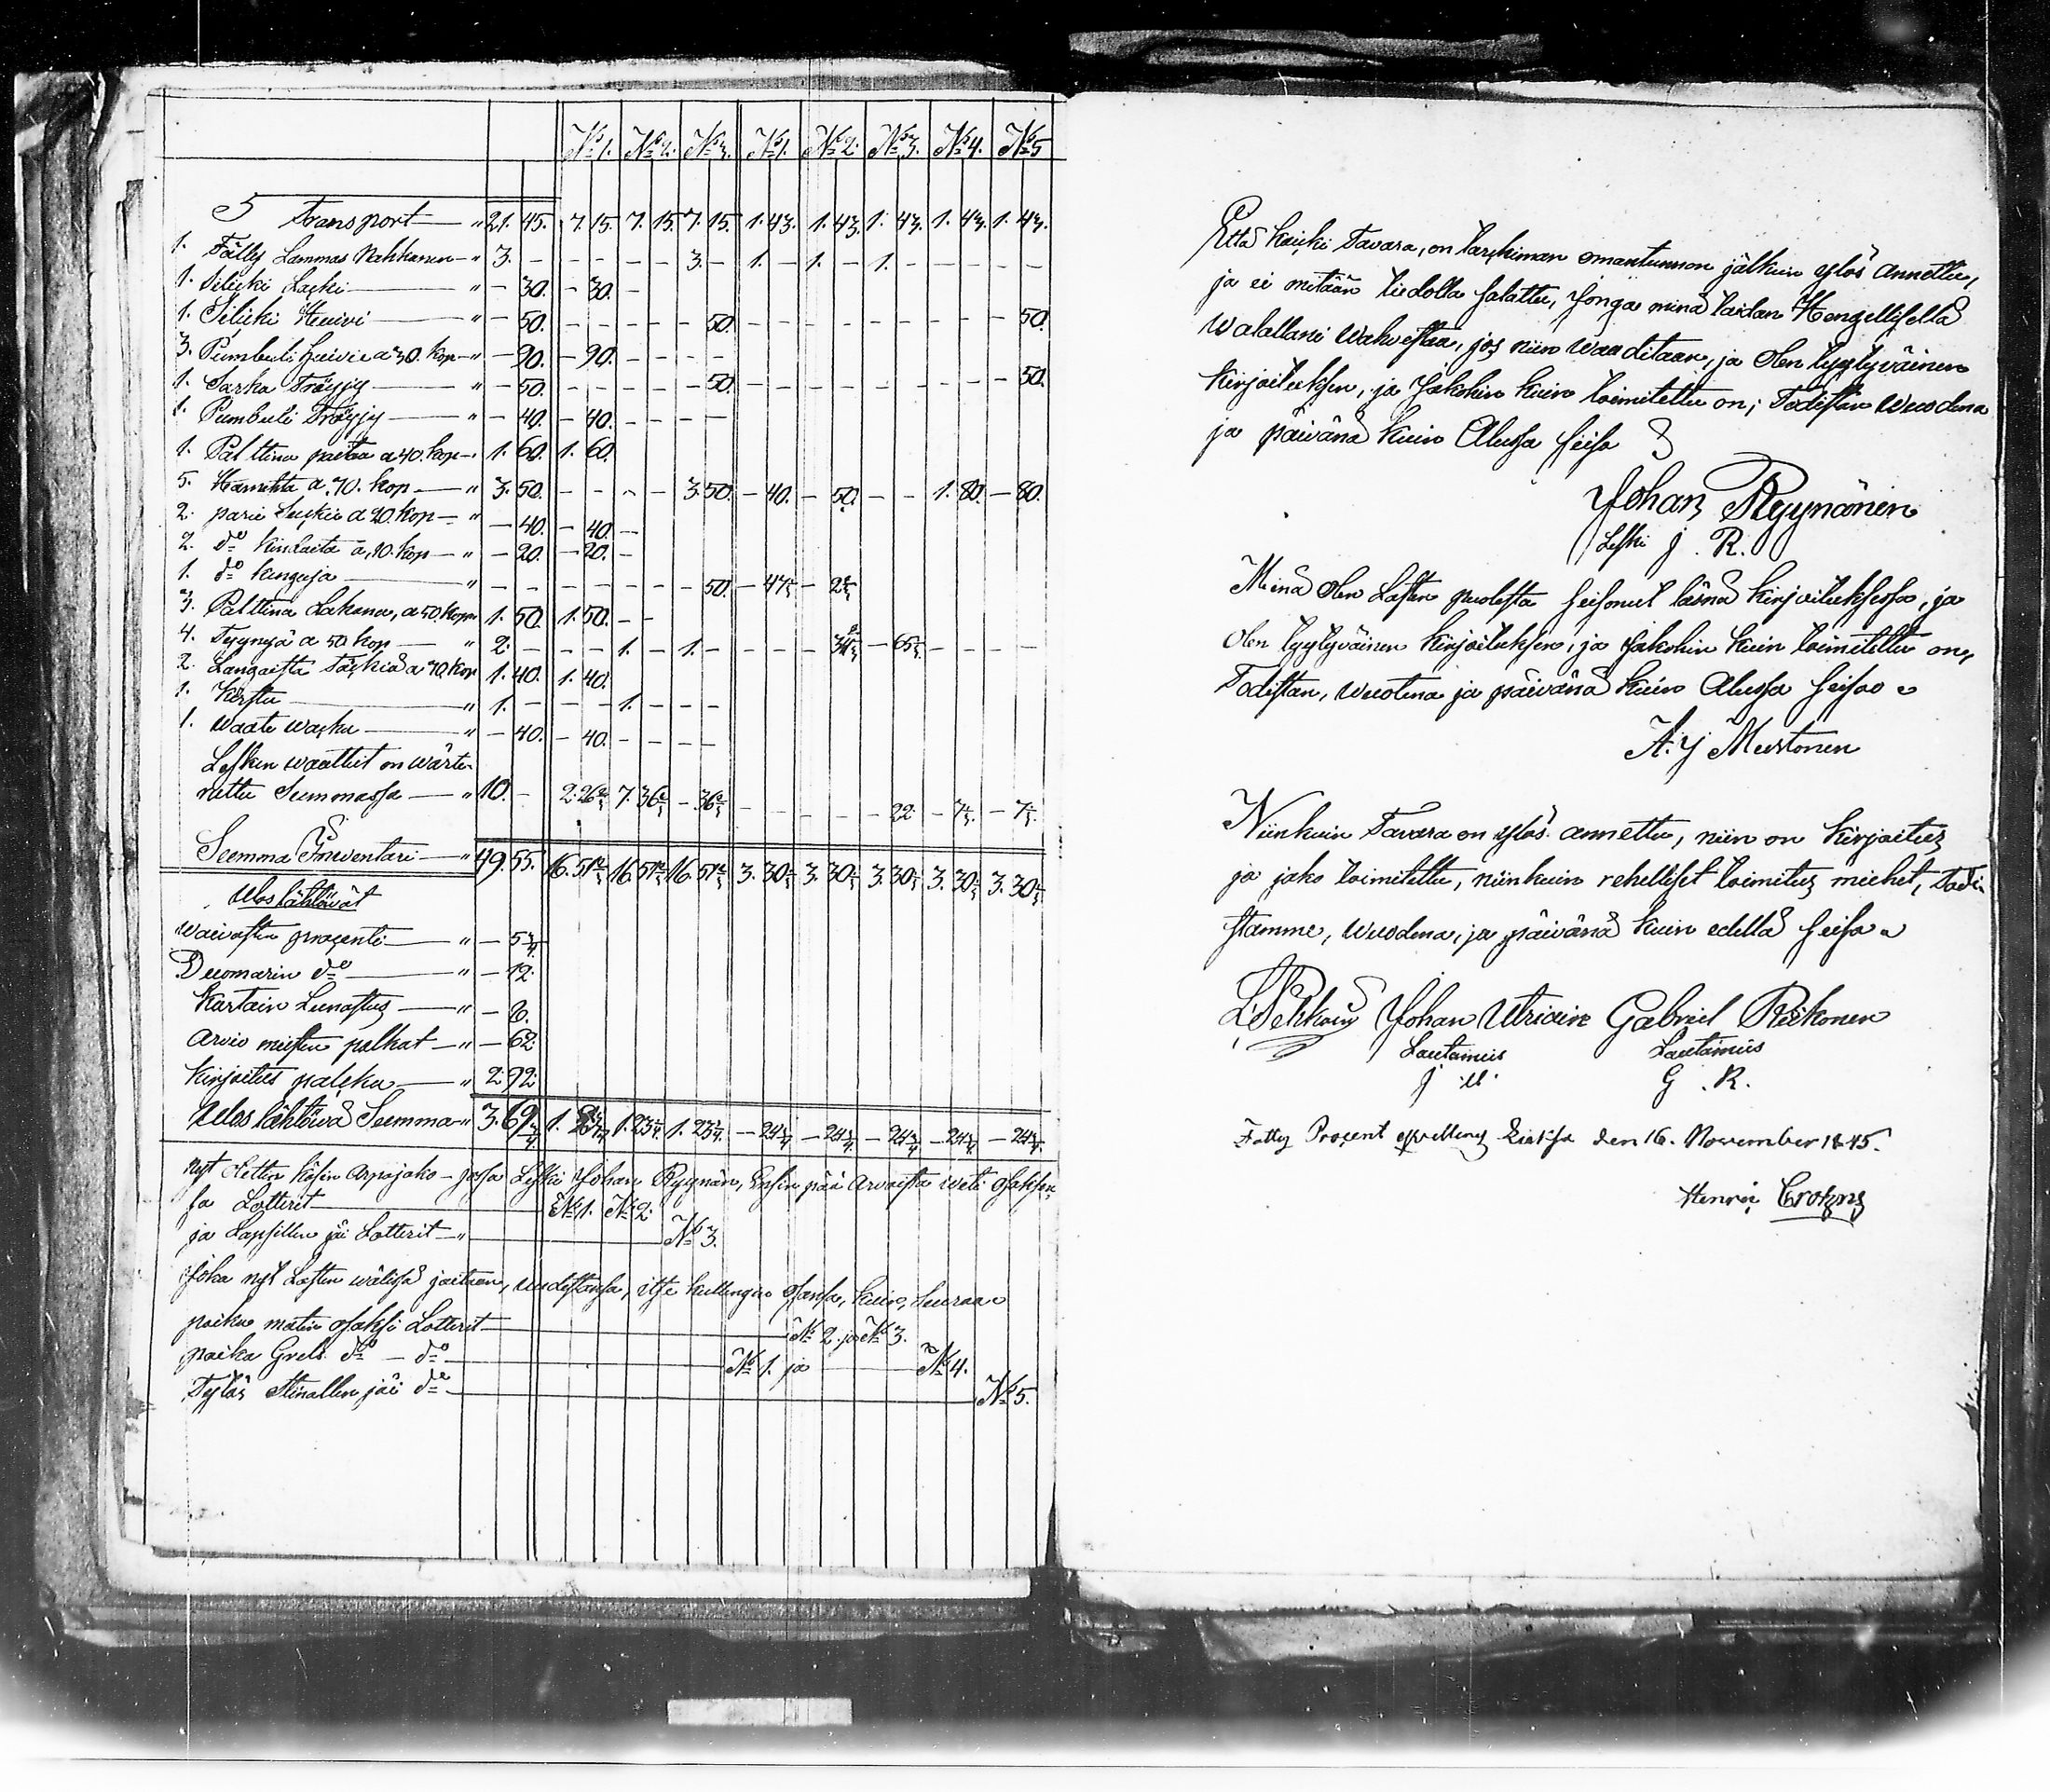 No 1. No 2. No 3. No 1. No 2. No 3. No 4. No 5
Transport " 21. 45. 7. 15. 7. 15. 7. 15. 1. 43. 1. 43. 1. 43. 1. 43. 1. 43.
1. Fälly Lammas Nahkanen " 3. - - - - - 3. - 1. - 1. - 1. - - - - -
1. Silicki Lacki " - 30. - 30. -
1. Silicki Huivi " - 50. - - - - - 50. - - - - - - - - - 50.
3. Pumbuli huivia a 30. kop " - 90. - 90. - - - -
1. Sarka Tröyjy " - 50. - - - - - 50. - - - - - - - - - 50.
1. Pumbuli Tröyjy " - 40. - 40. - - - -
1. Palttina paitaa a 40. kop 1. 60. 1. 60.
5. Hametta a. 70. kop " 3. 50. - - - - 3. 50. - 40. - 50. - - 1. 80. - 80.
2. parie Suckia a 20. kop " - 40. - 40. -
2. do kindaita a, 10. kop " - 20. - 20. -
1. do kengejä " - - - - - - - 50. - 47 - 2
3. Palttina Lakana, a 50. kop 1. 50. 1. 50. - -
4. Tyynyjä a 50 kop " 2. - - - 1. - 1. - - - - 34 - 65 - - - -
2. Langaista Täckiä a 70. kop 1. 40. 1. 40.
1. Kirstu " 1. - - - 1. - - -
1. Waate wacka " - 40. - 40. - - - -
Lesken waattet on wärte-
rattu Summassa " 10. - 2. 26 7. 36 - 36 - - - - - 22 - 7 - 7
Summa Inventari " 49. 55. 16. 51 16. 51 16. 51 3. 30 3. 30 3. 30 3. 30 3. 30
Ulos lähtöwät
Waiwasten procenti " - 5
Duomarin do " - 12.
Kartain Lunastus " - 6.
Arvio miesten palkat " - 62
Kirjoitus palcka " 2. 92
Ulos lähtöwä Summa " 3. 69 1. 1. 23 1. 23 - 24 - 24 - 24 - 24 - 24
nyt otettin käsin Arpajako - josa Leski Johan Ryynän, Ensin pää Arvaista weti osaksen-
sa Lotterit No 1. No 2.
ja Lapsillen jäi Lotterit No 3.
Joka nyt Lasten wälissä jaetaan, uudestansa, itse kullengin osansa, kuin, seuraa
poika Matin osaksi Lotterit No 2. ja No 3.
poika Grels do - do No 1. ja No 4.
Tytär Stinallen jäi do No 5.
Että kaicki Tavara, on tarckiman omantunnon jälkein ylös annettu,
ja ei mitään tiedolla salattu, Jonga minä taidan Hengellisellä
Walallani Wahvistaa, jos niin Waaditaan, ja olen tyytyväinen
kirjoituksen, ja Jakohin kuin toimitettu on; Todistan Wuodena
ja päivänä kuin Alussa seiso
Johan Ryynönen
Leski J. R.
Minä olen Lasten puolesta seisonut läsnä kirjoituksessa, ja
olen tyytyväinen kirjoituksen, ja Jakohin kuin toimitettu on,
Todistan, Wuotena ja päivänä kuin Alussa seisoo
A: J Mustonen
Niinkuin Tavara on ylös annettu, niin on kirjoitus
ja jako toimitettu, niinkuin rehelliset toimitus miehet, todi-
stamme, Wuodena, ja päivänä kuin edellä seiso
Johan Utriain Gabriel Räikonen
Lautamies Lautamies
J. U. G. R.
Fattig Procent den 16. November 1845.
Henric